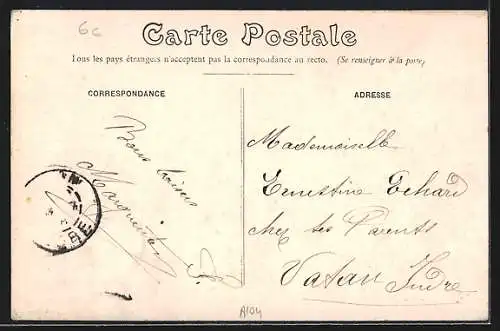 6c
Carte Postale
Tous les pays étrangers n'acceptent pas la correspondance au recto. (Se renseigner à la poste)
CORRESPONDANCE
ADRESSE
Bons baisers
Marguerite
Mademoiselle
Ernestine Echard
chez ses Parents
Vatan Indre
A104